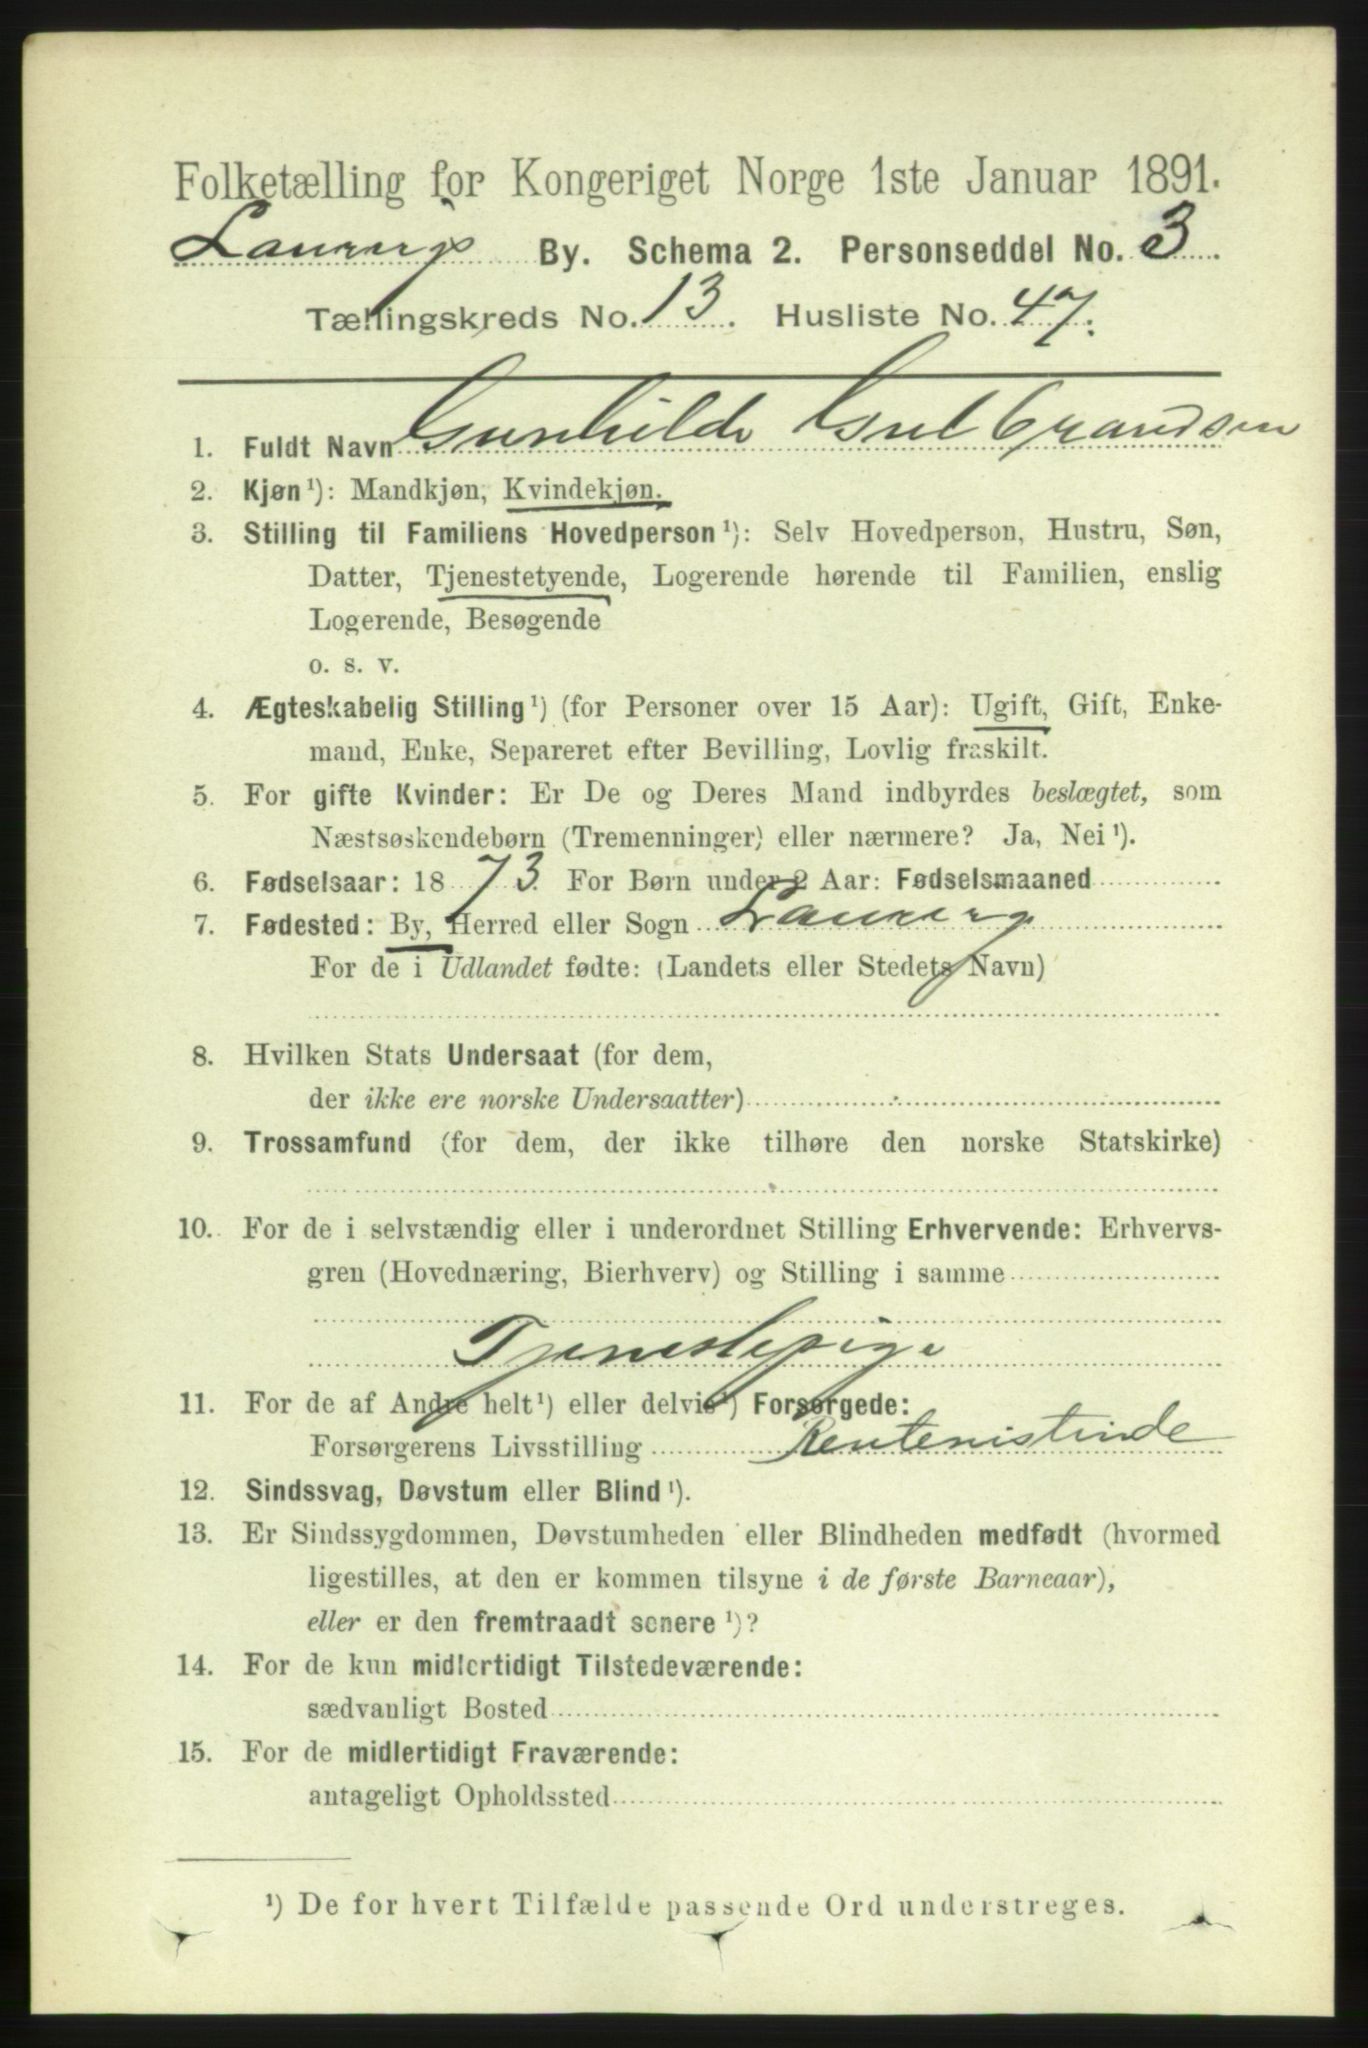 Folketælling for Kongeriget Norge 1ste Januar 1891.
Laurvig By. Schema 2. Personseddel No. 3.
Tællingskreds No. 13. Husliste No. 47.
1. Fuldt Navn Gunhilde Gulbrandsen
2. Kjøn ¹): Mandkjøn, Kvindekjøn.
3. Stilling til Familiens Hovedperson ¹): Selv Hovedperson, Hustru, Søn,
Datter, Tjenestetyende, Logerende hørende til Familien, enslig
Logerende, Besøgende
o. s. v.
4. Ægteskabelig Stilling ¹) (for Personer over 15 Aar): Ugift, Gift, Enke-
mand, Enke, Separeret efter Bevilling, Lovlig fraskilt.
5. For gifte Kvinder: Er De og Deres Mand indbyrdes beslægtet, som
Næstsøskendebørn (Tremenninger) eller nærmere? Ja, Nei ¹).
6. Fødselsaar: 1873. For Børn under 2 Aar: Fødselsmaaned
7. Fødested: By, Herred eller Sogn Laurvig
For de i Udlandet fødte: (Landets eller Stedets Navn)
8. Hvilken Stats Undersaat (for dem,
der ikke ere norske Undersaatter)
9. Trossamfund (for dem, der ikke tilhøre den norske Statskirke)
10. For de i selvstændig eller i underordnet Stilling Erhvervende: Erhvervs-
gren (Hovednæring, Bierhverv) og Stilling i samme
Tjenestepige
11. For de af Andre helt ¹) eller delvis ¹) Forsørgede:
Forsørgerens Livsstilling Rentenistinde
12. Sindssvag, Døvstum eller Blind ¹).
13. Er Sindssygdommen, Døvstumheden eller Blindheden medfødt (hvormed
ligestilles, at den er kommen tilsyne i de første Barneaar),
eller er den fremtraadt senere ¹)?
14. For de kun midlertidigt Tilstedeværende:
sædvanligt Bosted
15. For de midlertidigt Fraværende:
antageligt Opholdssted
¹) De for hvert Tilfælde passende Ord understreges.